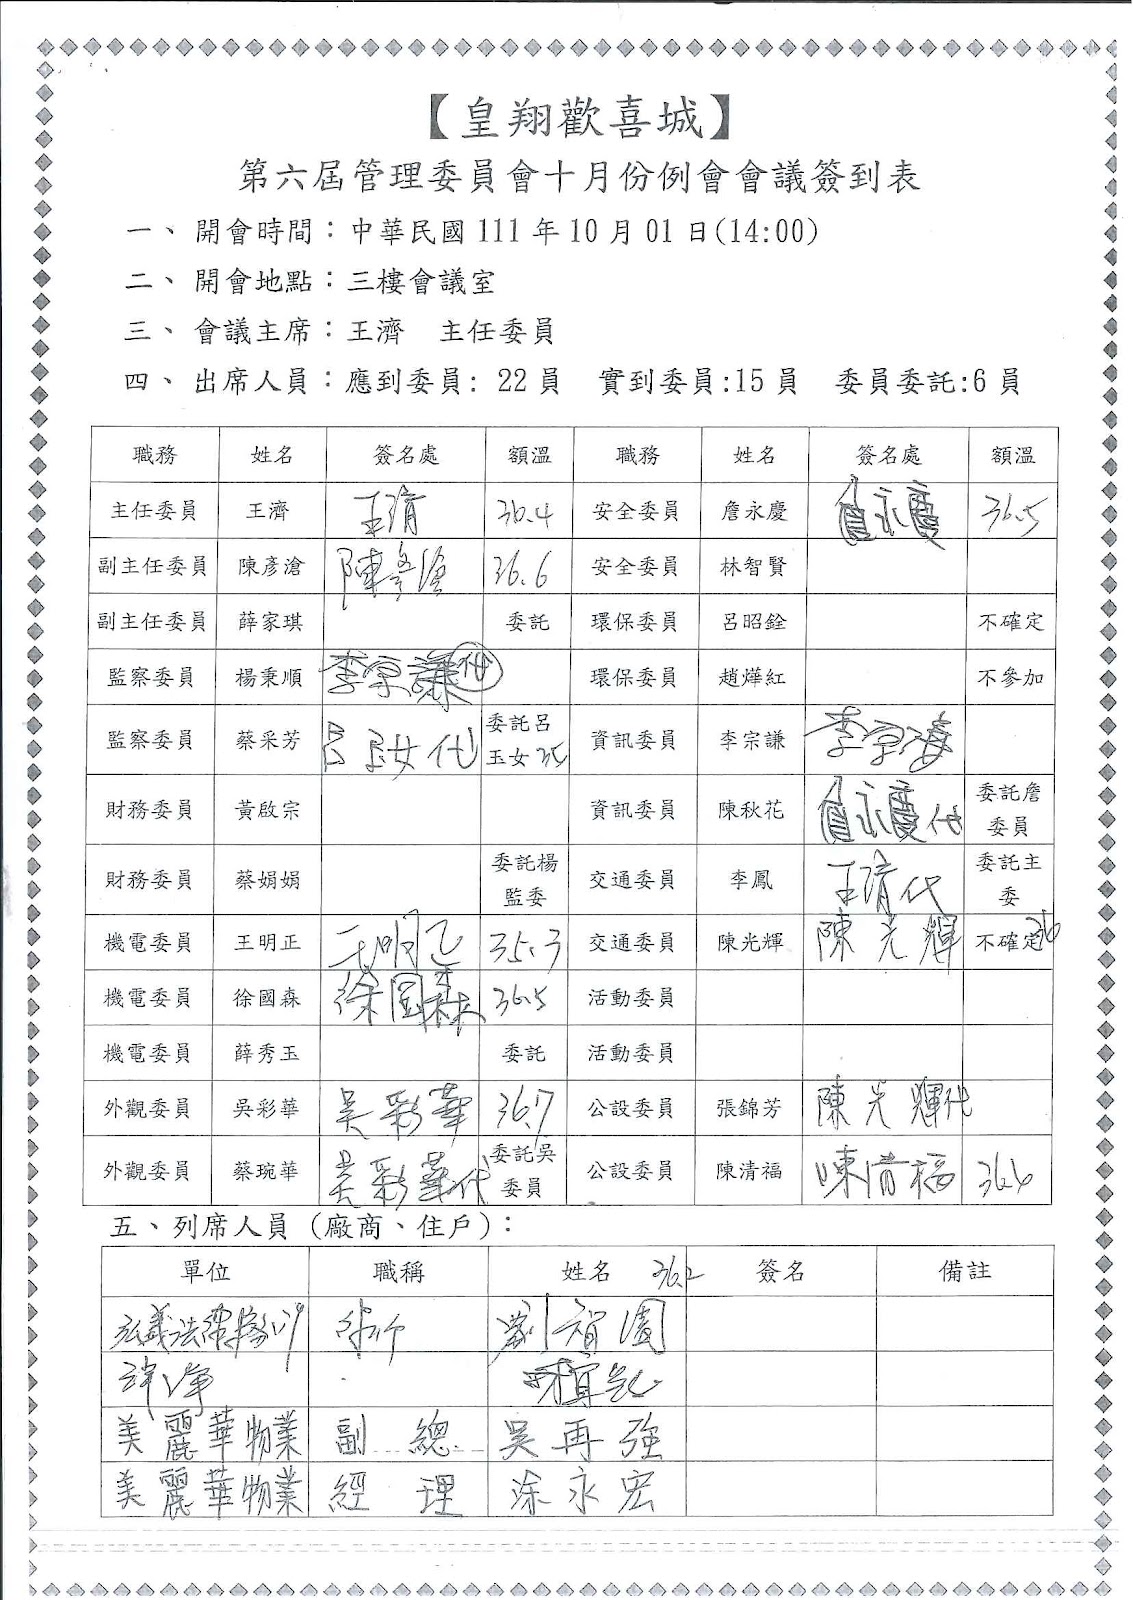 【皇翔歡喜城】
第六屆管理委員會十月份例會會議簽到表
一、 開會時間：中華民國 111 年 10 月 01 日(14:00)
二、 開會地點：三樓會議室
三、 會議主席：王濟 主任委員
四、 出席人員：應到委員: 22 員 實到委員:15 員 委員委託:6 員
職務 姓名 簽名處 額溫 職務 姓名 簽名處 額溫
主任委員 王濟 王濟 36.4 安全委員 詹永慶 詹永慶 36.5
副主任委員 陳彥滄 陳彥滄 36.6 安全委員 林智賢
副主任委員 薛家琪 委託 環保委員 呂昭銓 不確定
監察委員 楊秉順 李宗謙代 環保委員 趙燁紅 不參加
監察委員 蔡采芳 呂玉女代 委託呂玉女 35 資訊委員 李宗謙 李宗謙
財務委員 黃啟宗 資訊委員 陳秋花 詹永慶代 委託詹委員
財務委員 蔡娟娟 委託楊監委 交通委員 李鳳 王濟代 委託主委
機電委員 王明正 王明正 35.3 交通委員 陳光輝 陳光輝 不確定 36
機電委員 徐國森 徐國森 36.5 活動委員
機電委員 薛秀玉 委託 活動委員
外觀委員 吳彩華 吳彩華 36.7 公設委員 張錦芳 陳光輝代
外觀委員 蔡琬華 吳彩華代 委託吳委員 公設委員 陳清福 陳清福 36.6
五、列席人員（廠商、住戶）：
單位 職稱 姓名 36.2 簽名 備註
美麗華物業 副總 吳再強
美麗華物業 經理 涂永宏